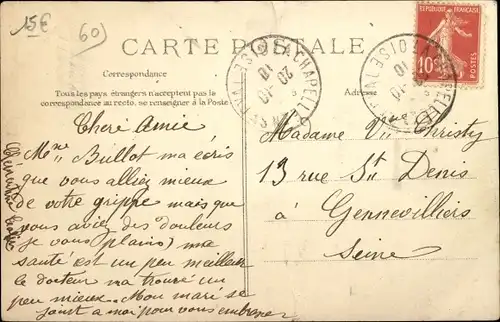 15€
60
CARTE POSTALE
Correspondance
Tous les pays étrangers n'acceptent pas la
correspondance au recto, se renseigner à la Poste
Adresse
REPUBLIQUE FRANÇAISE
10c
POSTES
LA CHAPELLE
20 - 10
10
Chère Amie
Mme Bullot ma écris
que vous alliez mieux
de votre grippe mais que
vous aviez des douleurs
je vous plains) ma
santé est un peu meilleure
le docteur ma trouvé un
peu mieux. Mon mari se
joint a moi pour vous embrasser
Madame Vve Christy
13 rue St Denis
à Gennevilliers
Seine